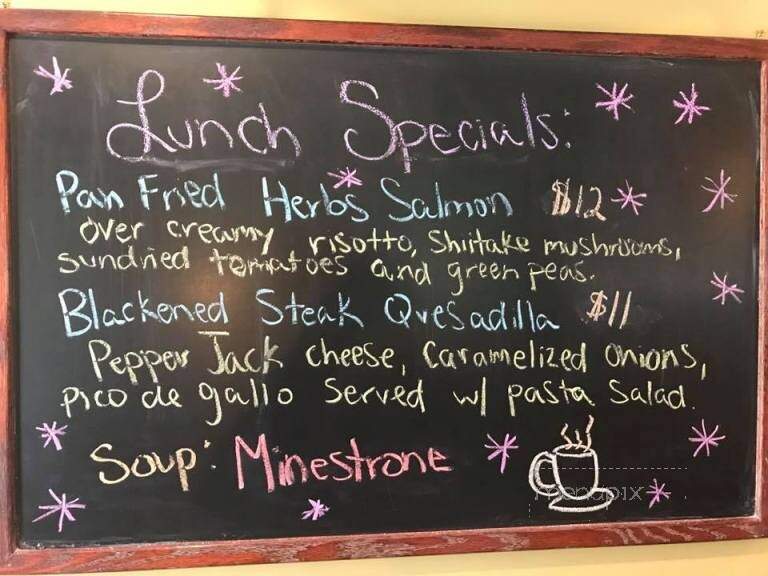 Lunch Specials:
Pan Fried Herbs Salmon $12
over creamy risotto, Shiitake mushrooms,
sundried tomatoes and green peas.
Blackened Steak Quesadilla $11
Pepper Jack cheese, Caramelized onions,
pico de gallo Served w/ pasta Salad.
Soup: Minestrone
menupix